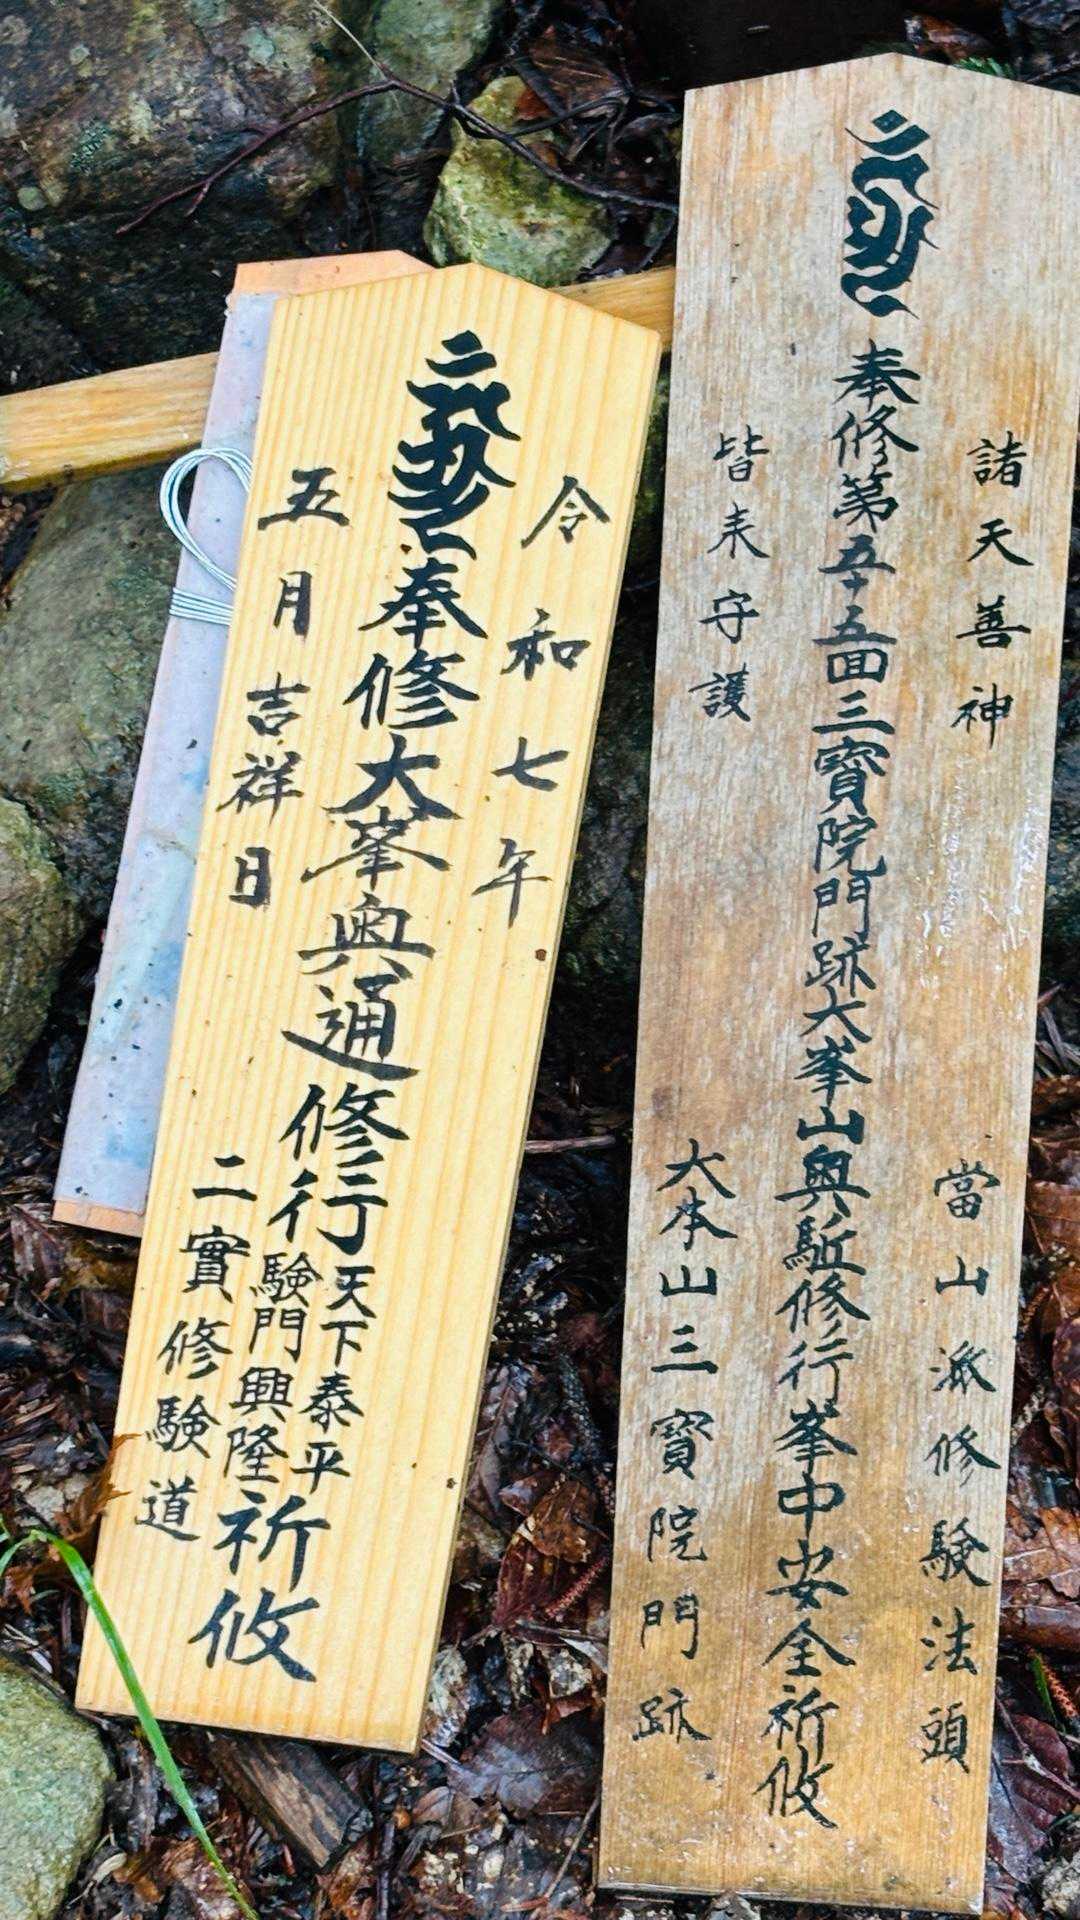 諸天善神
當山派修験法頭
奉修第五十五回三寶院門跡大峯山奥駈修行峯中安全祈攸
皆来守護
大本山三寶院門跡
令和七年
奉修大峯奥通修行
天下泰平
験門興隆
祈攸
五月吉祥日
二實修験道